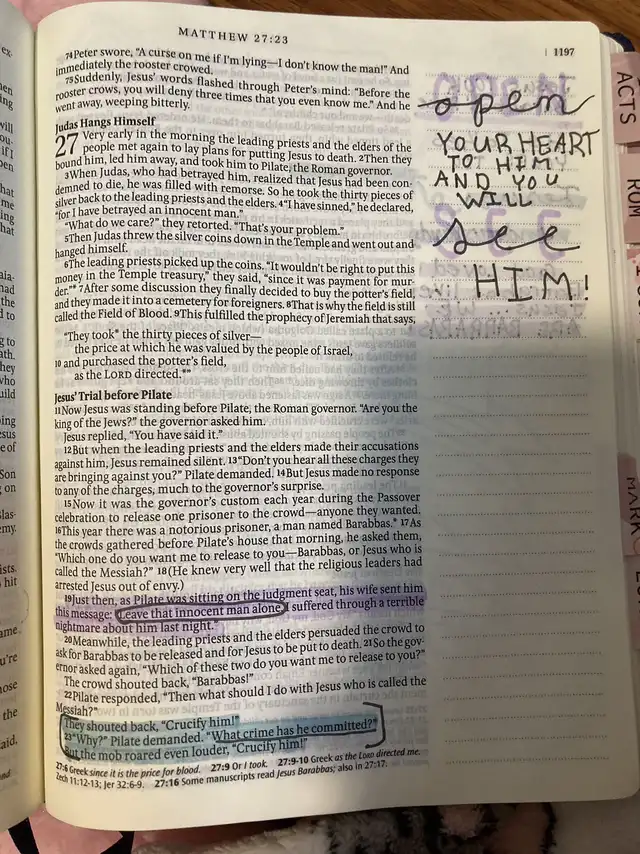 MATTHEW 27:23
1197
74Peter swore, “A curse on me if I’m lying—I don’t know the man!” And
immediately the rooster crowed.
75Suddenly, Jesus’ words flashed through Peter’s mind: “Before the
rooster crows, you will deny three times that you even know me.” And he
went away, weeping bitterly.
Judas Hangs Himself
27 Very early in the morning the leading priests and the elders of the
people met again to lay plans for putting Jesus to death. 2Then they
bound him, led him away, and took him to Pilate, the Roman governor.
3When Judas, who had betrayed him, realized that Jesus had been con-
demned to die, he was filled with remorse. So he took the thirty pieces of
silver back to the leading priests and the elders. 4“I have sinned,” he declared,
“for I have betrayed an innocent man.”
“What do we care?” they retorted. “That’s your problem.”
5Then Judas threw the silver coins down in the Temple and went out and
hanged himself.
6The leading priests picked up the coins. “It wouldn’t be right to put this
money in the Temple treasury,” they said, “since it was payment for mur-
der.”* 7After some discussion they finally decided to buy the potter’s field,
and they made it into a cemetery for foreigners. 8That is why the field is still
called the Field of Blood. 9This fulfilled the prophecy of Jeremiah that says,
“They took* the thirty pieces of silver—
the price at which he was valued by the people of Israel,
10 and purchased the potter’s field,
as the LORD directed.*”
Jesus’ Trial before Pilate
11Now Jesus was standing before Pilate, the Roman governor. “Are you the
king of the Jews?” the governor asked him.
Jesus replied, “You have said it.”
12But when the leading priests and the elders made their accusations
against him, Jesus remained silent. 13“Don’t you hear all these charges they
are bringing against you?” Pilate demanded. 14But Jesus made no response
to any of the charges, much to the governor’s surprise.
15Now it was the governor’s custom each year during the Passover
celebration to release one prisoner to the crowd—anyone they wanted.
16This year there was a notorious prisoner, a man named Barabbas.* 17As
the crowds gathered before Pilate’s house that morning, he asked them,
“Which one do you want me to release to you—Barabbas, or Jesus who is
called the Messiah?” 18(He knew very well that the religious leaders had
arrested Jesus out of envy.)
19Just then, as Pilate was sitting on the judgment seat, his wife sent him
this message: “Leave that innocent man alone. I suffered through a terrible
nightmare about him last night.”
20Meanwhile, the leading priests and the elders persuaded the crowd to
ask for Barabbas to be released and for Jesus to be put to death. 21So the gov-
ernor asked again, “Which of these two do you want me to release to you?”
The crowd shouted back, “Barabbas!”
22Pilate responded, “Then what should I do with Jesus who is called the
Messiah?”
They shouted back, “Crucify him!”
23“Why?” Pilate demanded. “What crime has he committed?”
But the mob roared even louder, “Crucify him!”
27:6 Greek since it is the price for blood. 27:9 Or I took. 27:9-10 Greek as the LORD directed me.
Zech 11:12-13; Jer 32:6-9. 27:16 Some manuscripts read Jesus Barabbas; also in 27:17.
open
YOUR HEART
TO HIM
AND YOU
WILL
see
HIM!
ACTS
ROM
MARK